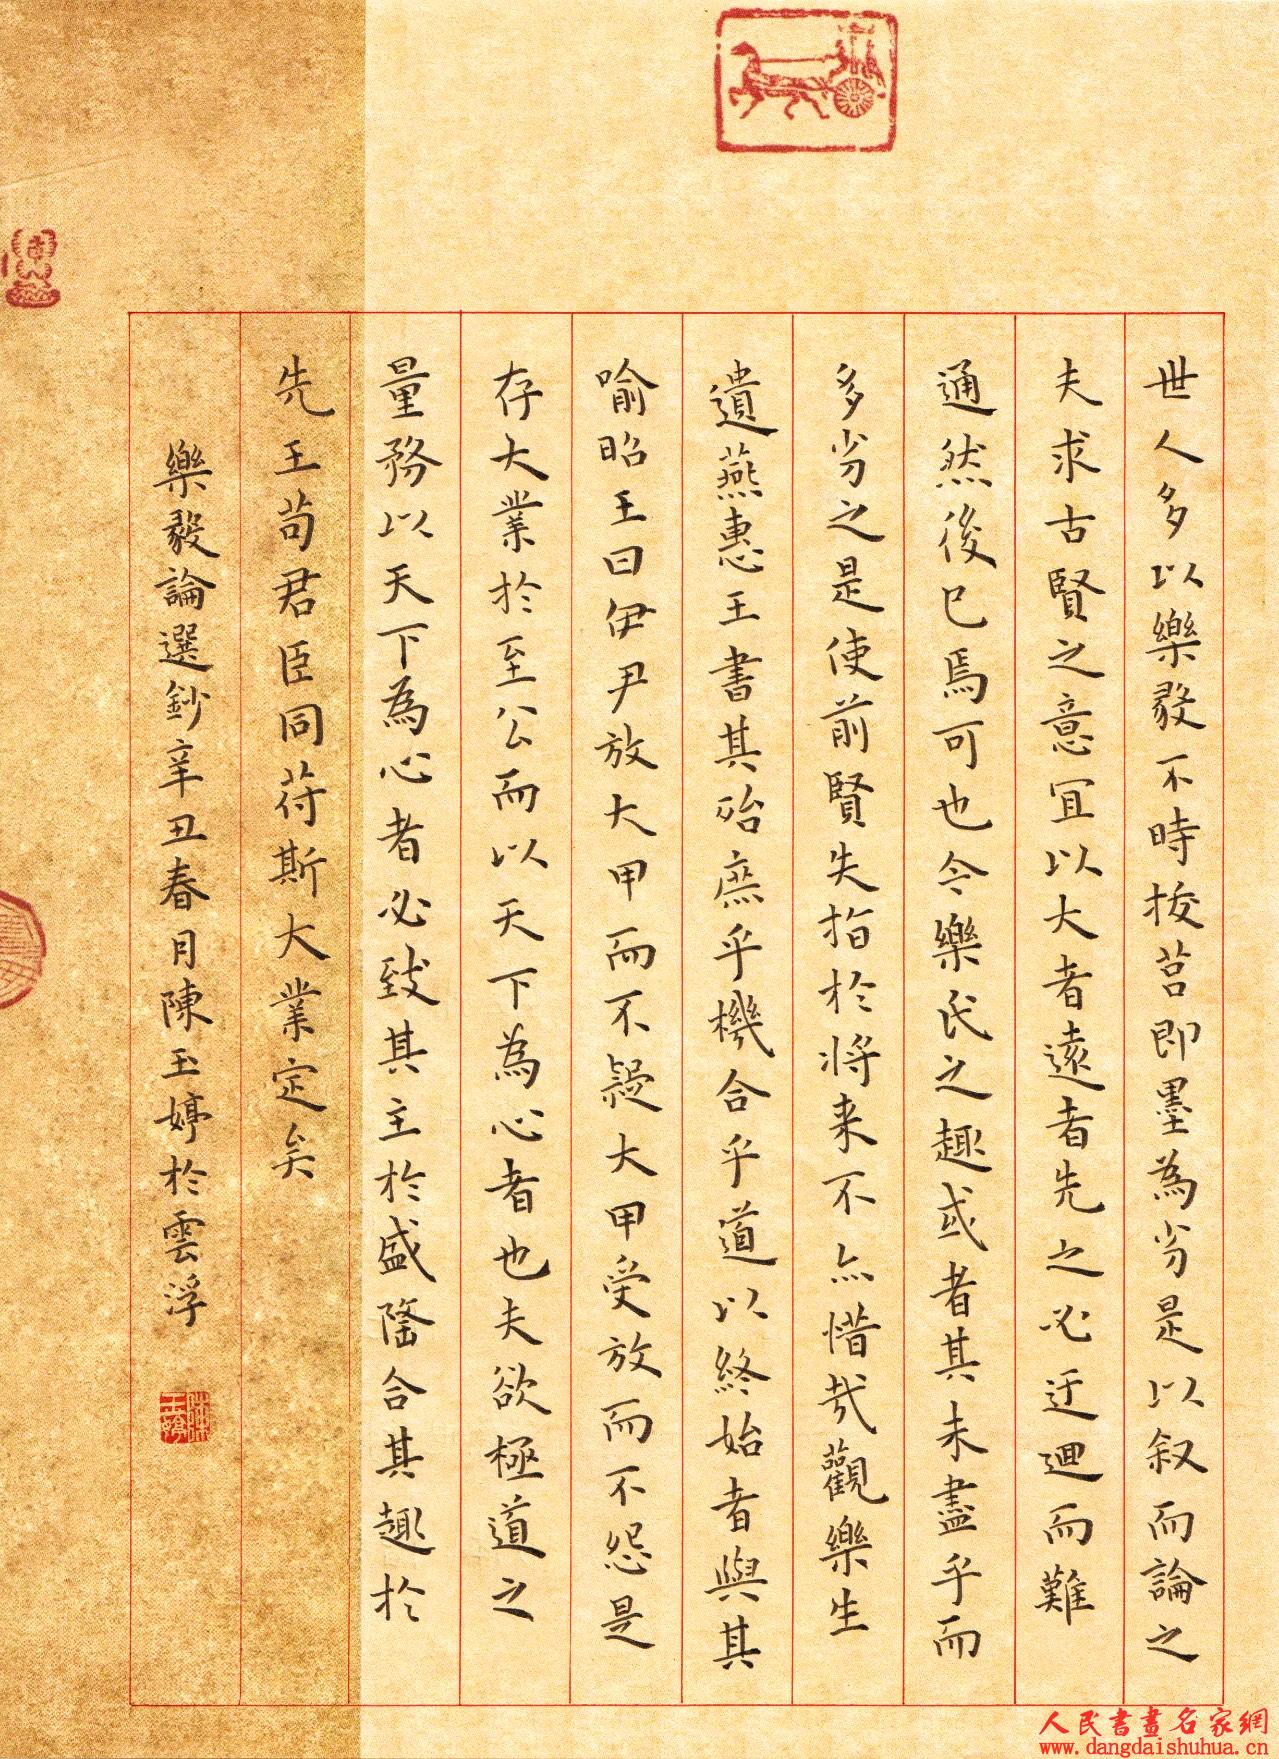 世人多以樂毅不時拔莒即墨為劣是以叙而論之
夫求古賢之意冝以大者遠者先之必迂迴而難
通然後已焉可也今樂氏之趣或者其未盡乎而
多劣之是使前賢失指於將来不亦惜哉觀樂生
遺燕惠王書其殆庶乎機合乎道以終始者與其
喻昭王曰伊尹放大甲而不疑大甲受放而不怨是
存大業於至公而以天下為心者也夫欲極道之
量務以天下為心者必致其主於盛隆合其趣於
先王苟君臣同苻斯大業定矣
樂毅論選鈔辛丑春月陳玉婷於雲浮
陳玉婷
人民書畫名家網
www.dangdaishuhua.cn